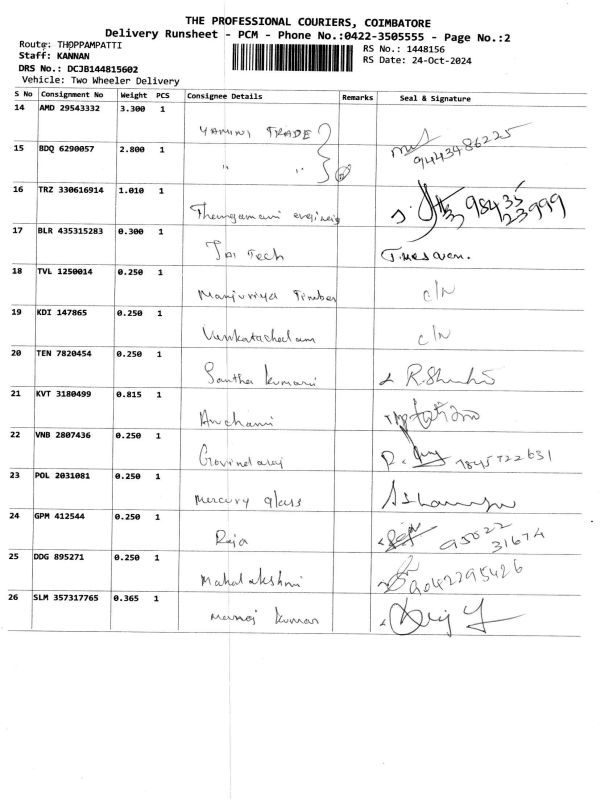 THE PROFESSIONAL COURIERS, COIMBATORE
Delivery Runsheet - PCM - Phone No.:0422-3505555 - Page No.:2
Route: THOPPAMPATTI
RS No.: 1448156
Staff: KANNAN
RS Date: 24-Oct-2024
DRS No.: DCJB144815602
Vehicle: Two Wheeler Delivery
S No Consignment No Weight PCS Consignee Details Remarks Seal & Signature
14 AMD 29543332 3.300 1
YAMINI TRADE
15 BDQ 6290057 2.800 1
" " 9443486225
16 TRZ 330616914 1.010 1
98435
Thengamani 23999
17 BLR 435315283 0.300 1
Jai Tech
18 TVL 1250014 0.250 1
Manjuriya Timber c/n
19 KDI 147865 0.250 1
Venkatachalam c/n
20 TEN 7820454 0.250 1
Santha Kumari
21 KVT 3180499 0.815 1
22 VNB 2807436 0.250 1
Govindaraj
23 POL 2031081 0.250 1
Mercury glass
24 GPM 412544 0.250 1
Raja 95022
31674
25 DDG 895271 0.250 1
Mahalakshmi 9042295426
26 SLM 357317765 0.365 1
Manoj Kumar